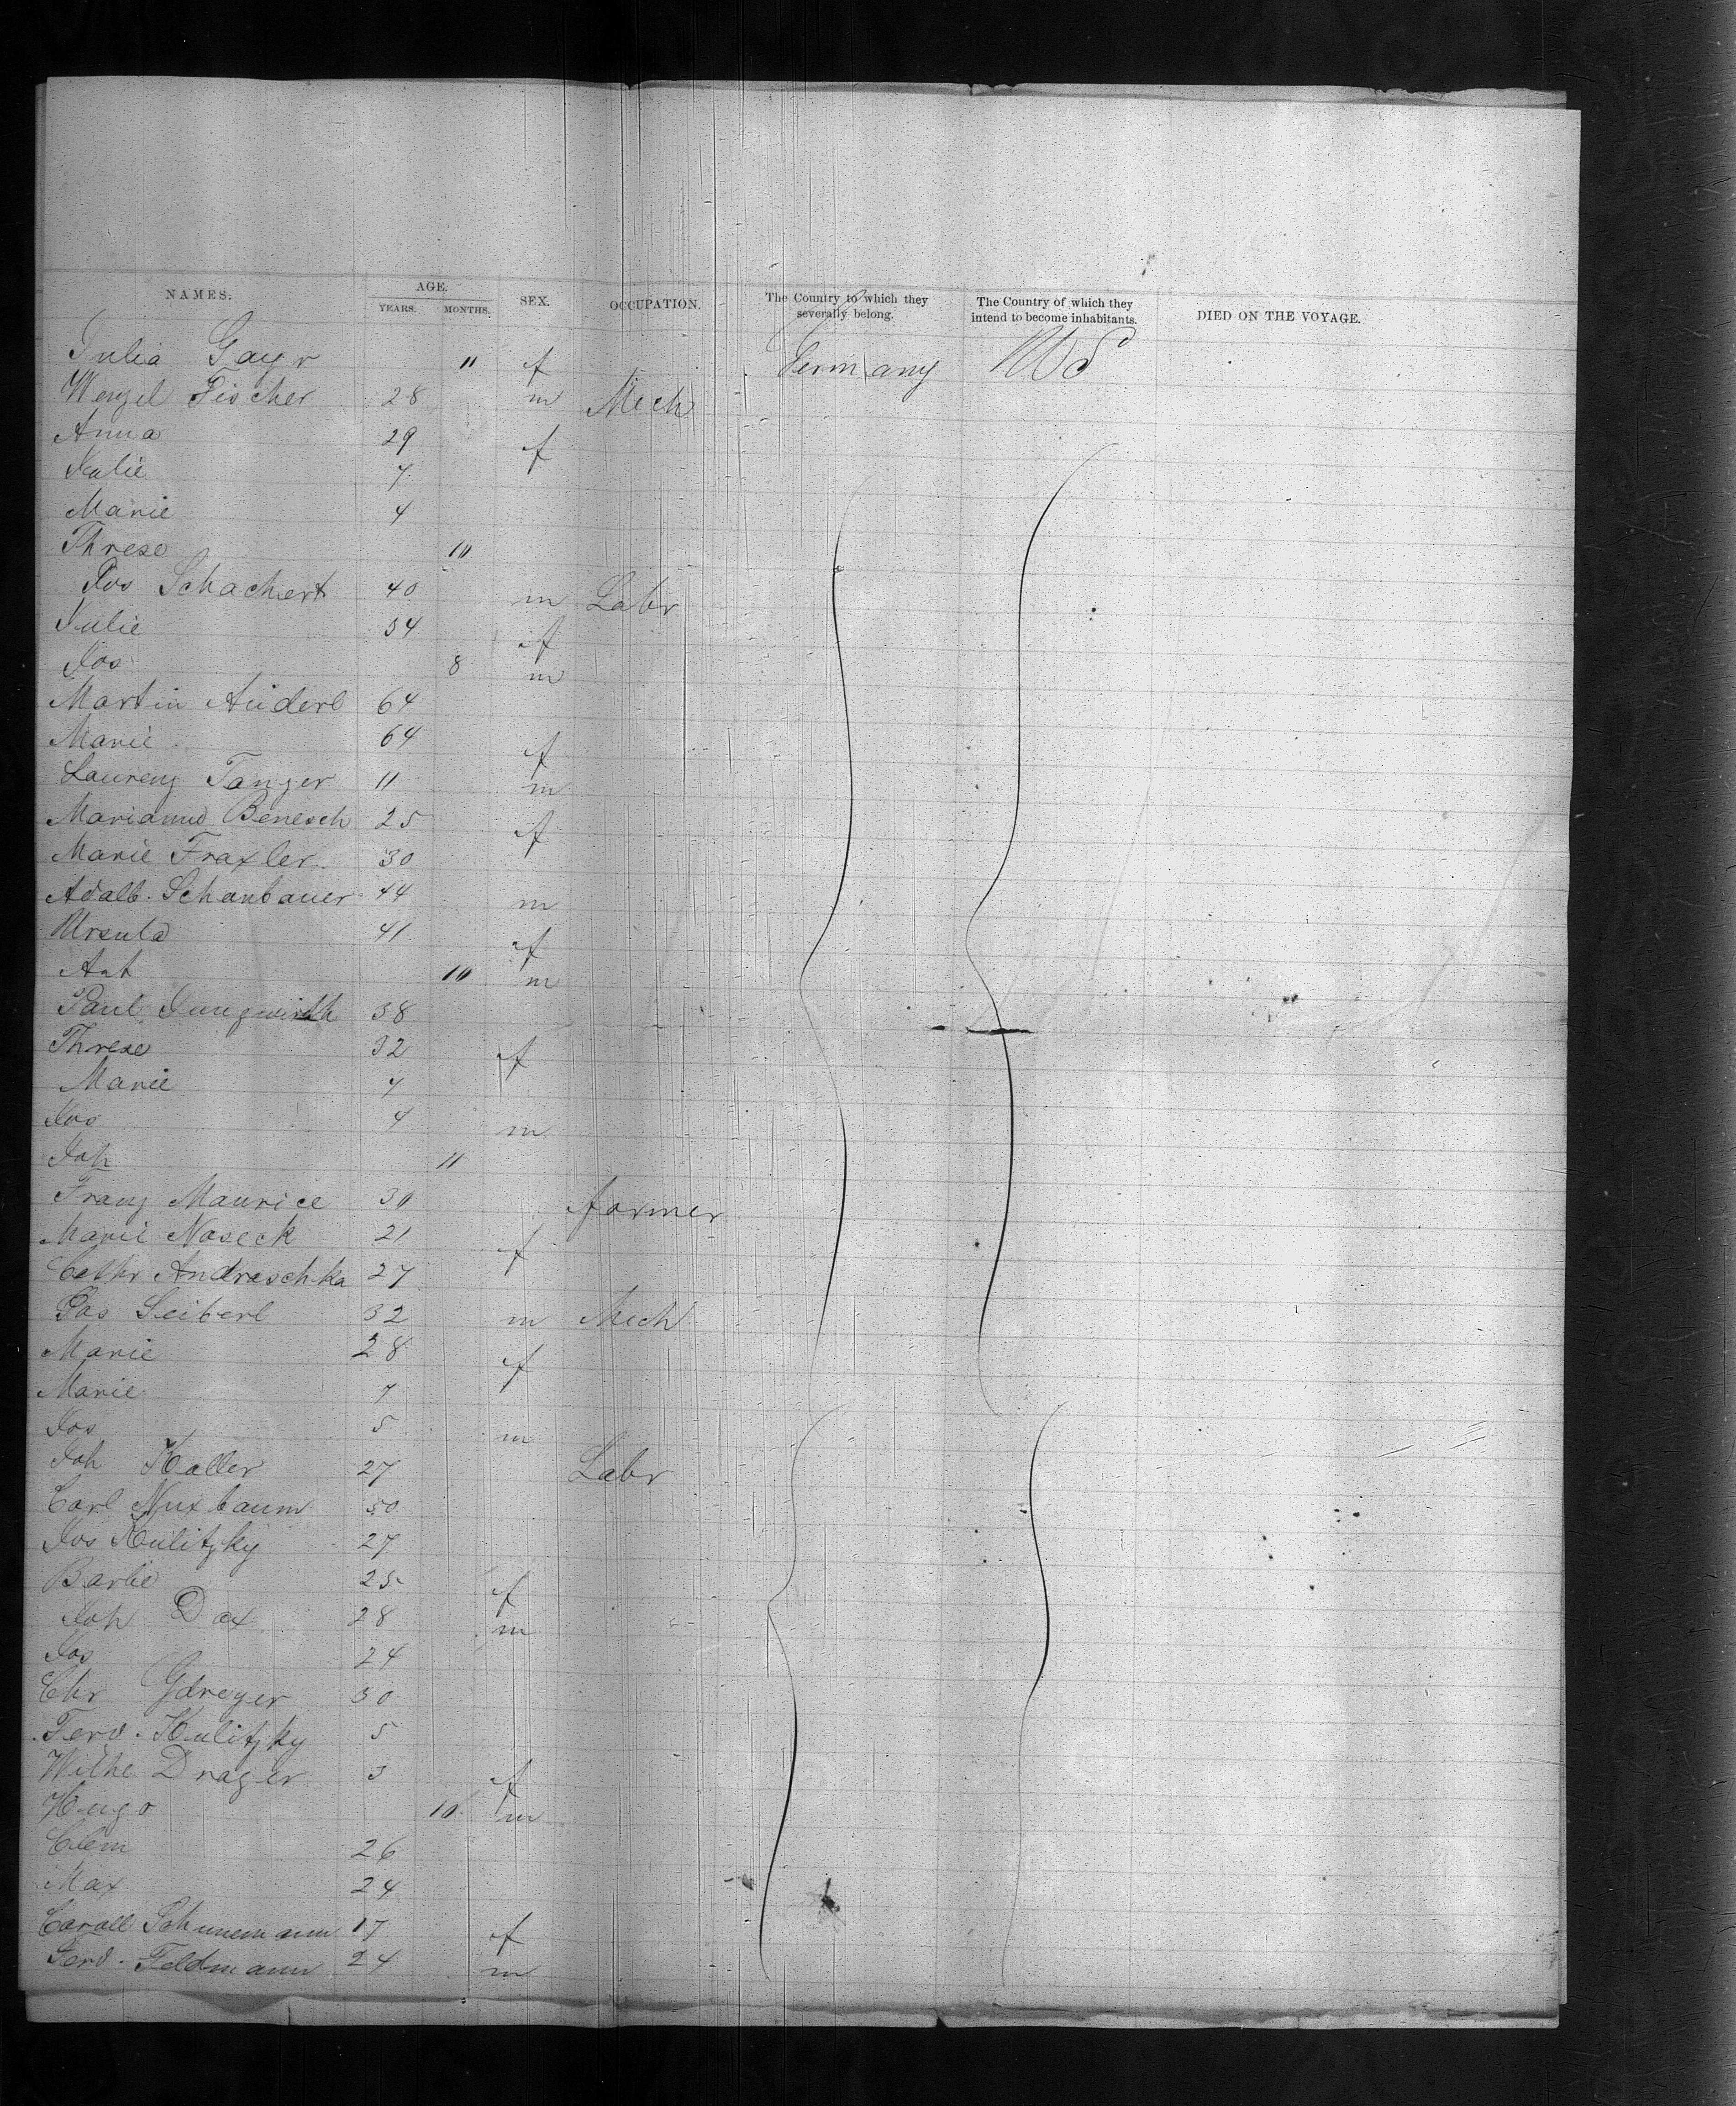 NAMES. AGE. YEARS. MONTHS. SEX. OCCUPATION. The Country to which they severally belong. The Country of which they intend to become inhabitants. DIED ON THE VOYAGE.
Julia Gayr 11 f Germany US
Wenzel Fischer 28 m Mech
Anna 29 f
Julie 7
Marie 4
Threse 10
Jos Schachert 40 m Labr
Julie 34 f
Jos 8 m
Martin Auderl 64
Marie 64 f
Laurenz Tanzer 11 m
Marianne Benesch 25 f
Marie Fraxler 30
Adalb. Schanbauer 44 m
Ursula 41 f
Ant 10 m
Paul Jungwirth 38
Threse 32 f
Marie 7
Jos 4 m
Joh 11
Franz Maurice 30 farmer
Marie Noseck 21 f
Cathr Andraschka 27
Jos Seiberl 32 m Mech
Marie 28 f
Marie 7
Jos 5 m
Joh Kaller 27 Labr
Carl Nuxbaum 50
Jos Kulitzky 27
Barbe 25 f
Joh Dax 28 m
Jos 24
Chr 30
Ferd. Kulitzky 5
Wilhe Drager 3 f
Hugo 10 m
Clem 26
Max 24
Caroll Schunemann 17 f
Ferd. Feldmann 24 m